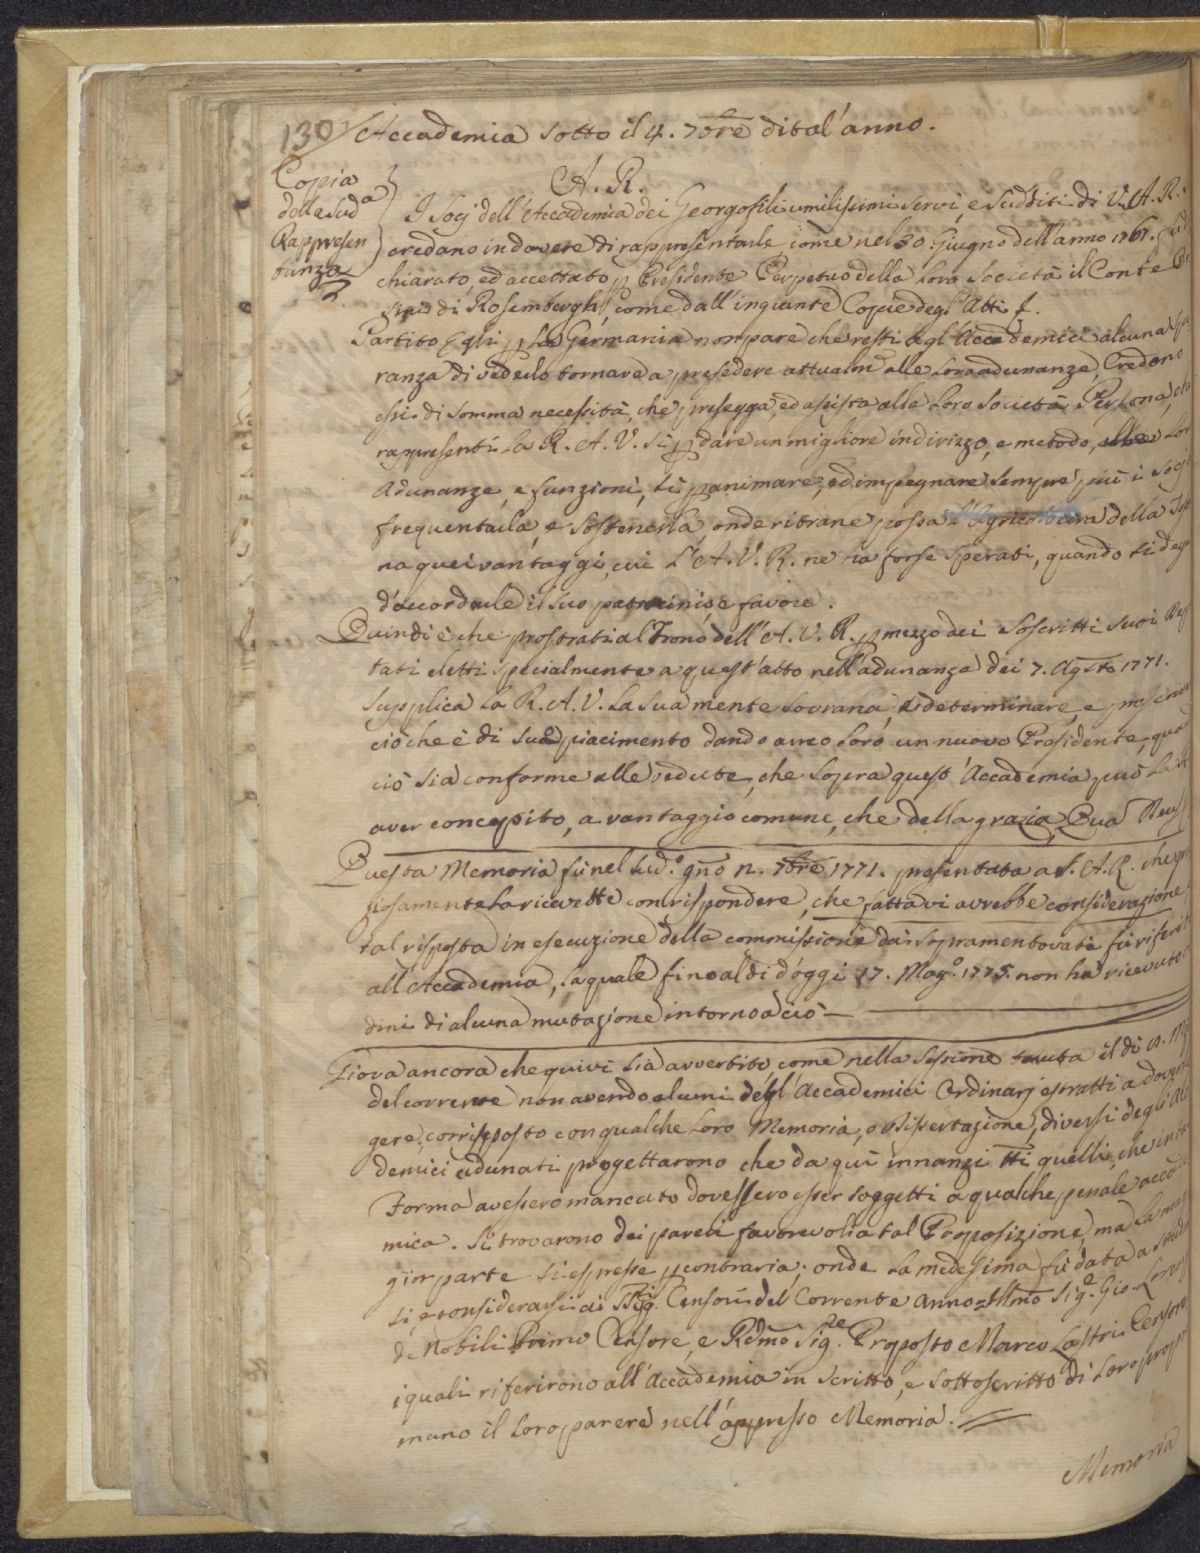 130 Accademia sotto il 4. 7bre di tal'anno.
Copia
della Sud.a
Rappresen
tanza
A. R.
I Socj dell'Accademia dei Georgofili umilissimi servi, e sudditi di V. A. R.
credano in dovere di rappresentarle come nel 30 Giugno dell'anno 1767.
chiarato, ed accettato p Presidente Perpetuo della loro Società il Conte
di Rosembergh, come dall'ingiunte Copie degl'Atti
Partito Egli p La Germania non pare che resti agl'Accademici alcuna spe
ranza di vederlo tornare a presedere attualm alle loro adunanze, Credono
essi di somma necessità, che presegga, ed assista alle loro Società Persona, che
rappresenti La R. A. V. si p dare un migliore indirizzo, e metodo, alle lor
Adunanze, e funzioni, si p animare, ed impegnare sempre più i Socj
frequentarla, e sostenerla, onde ritrarne possa l'Agricoltura della Tosc
na quei vantaggi, cui L'A. V. R. ne ha forse sperati, quando si deg
d'accordarle il suo patrocinio, e favore.
Quindi è che prostrati al Trono dell'A. V. R. p mezzo dei soscritti suoi
tati eletti specialmente a quest'atto nell'adunanza dei 7. Agsto 1771.
supplica La R. A. V. La sua mente sovrana, a determinare, e prescrive
ciò che è di suo piacimento dando anco loro un nuovo Presidente, qua
ciò sia conforme alle vedute, che sopra quest'Accademia può La A
aver concepito, a vantaggio comune, che della grazia, Qua Deus
Questa Memoria fù nel sud.o gno n. 7bre 1771. presentata a S. A. R. che gra
ziosamente La ricevette con rispondere, che fatta vi avrebbe considerazione,
tal risposta in esecuzione della commissione dai sopramentovati fù riferit
all'Accademia, La quale fino al dì d'oggi 17. Mag.o 1775. non ha ricevuto
dini di alcuna mutazione intorno a ciò —
Giova ancora che quivi sia avvertito, come nella sessione tenuta il dì
del corrente non avendo alcuni degl'Accademici Ordinarj estratti a dover
gere, corrisposto con qualche loro Memoria, o Dissertazione, diversi degli Acc
demici adunati progettarono che da qui innanzi tti quelli, che in ta
Forma avessero mancato dovessero esser soggetti a qualche penale accade
mica. Si trovarono dei pareri favorevoli a tal Proposizione, ma La mag
gior parte si espresse p contraria; onde La medesima fù data a studi
si, e considerarsi ai SSig. Censori del Corrente anno Illmo Sig.e Gio. Lorenz
de Nobili Primo Censore, e Rdmo Sig.re Proposto Marco Lastri Censore
i quali riferirono all'Accademia in scritto, e sottoscritto di loro propr
mano il loro parere nell'appresso Memoria.
Memoria